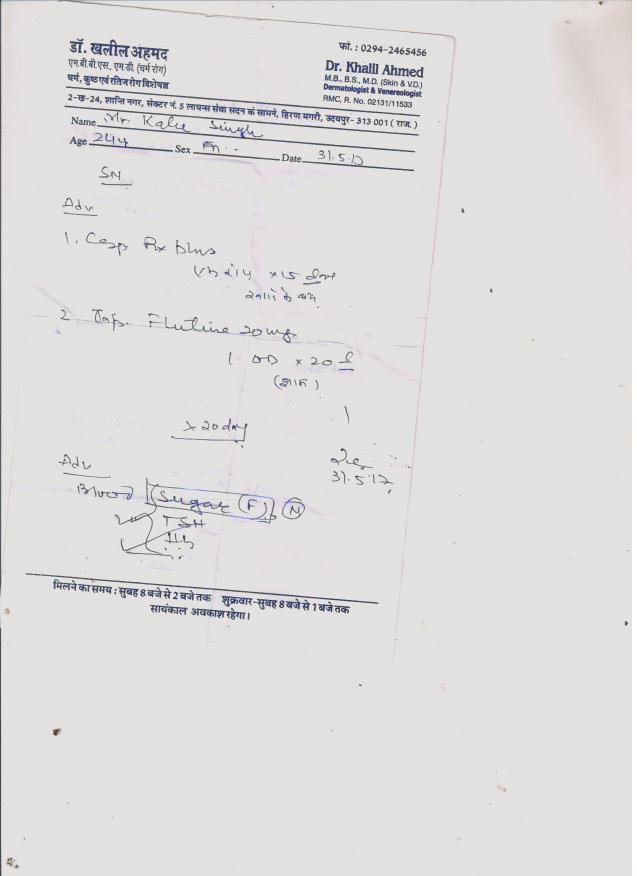 डॉ. खलील अहमद
एम.बी.बी.एस., एम.डी. (चर्म रोग)
चर्म, कुष्ठ एवं रतिज रोग विशेषज्ञ
फो. : 0294-2465456
Dr. Khalil Ahmed
M.B., B.S., M.D. (Skin & V.D.)
Dermatologist & Venereologist
RMC, R. No. 02131/11533
2-ख-24, शान्ति नगर, सेक्टर नं. 5 लायन्स सेवा सदन के सामने, हिरण मगरी, उदयपुर- 313 001 ( राज. )
Name Mr. Kalu Singh
Age 24y Sex M Date 31.5.17
SN
Adv
1. Cap Rx plus
x 15 days
2 Tab. Flutine 20mg.
1 OD x 20 d
(शाम)
x 20 day
31.5.17
Adv
Blood Sugar (F) N
TSH
Hb
मिलने का समय : सुबह 8 बजे से 2 बजे तक शुक्रवार-सुबह 8 बजे से 1 बजे तक
सायंकाल अवकाश रहेगा।